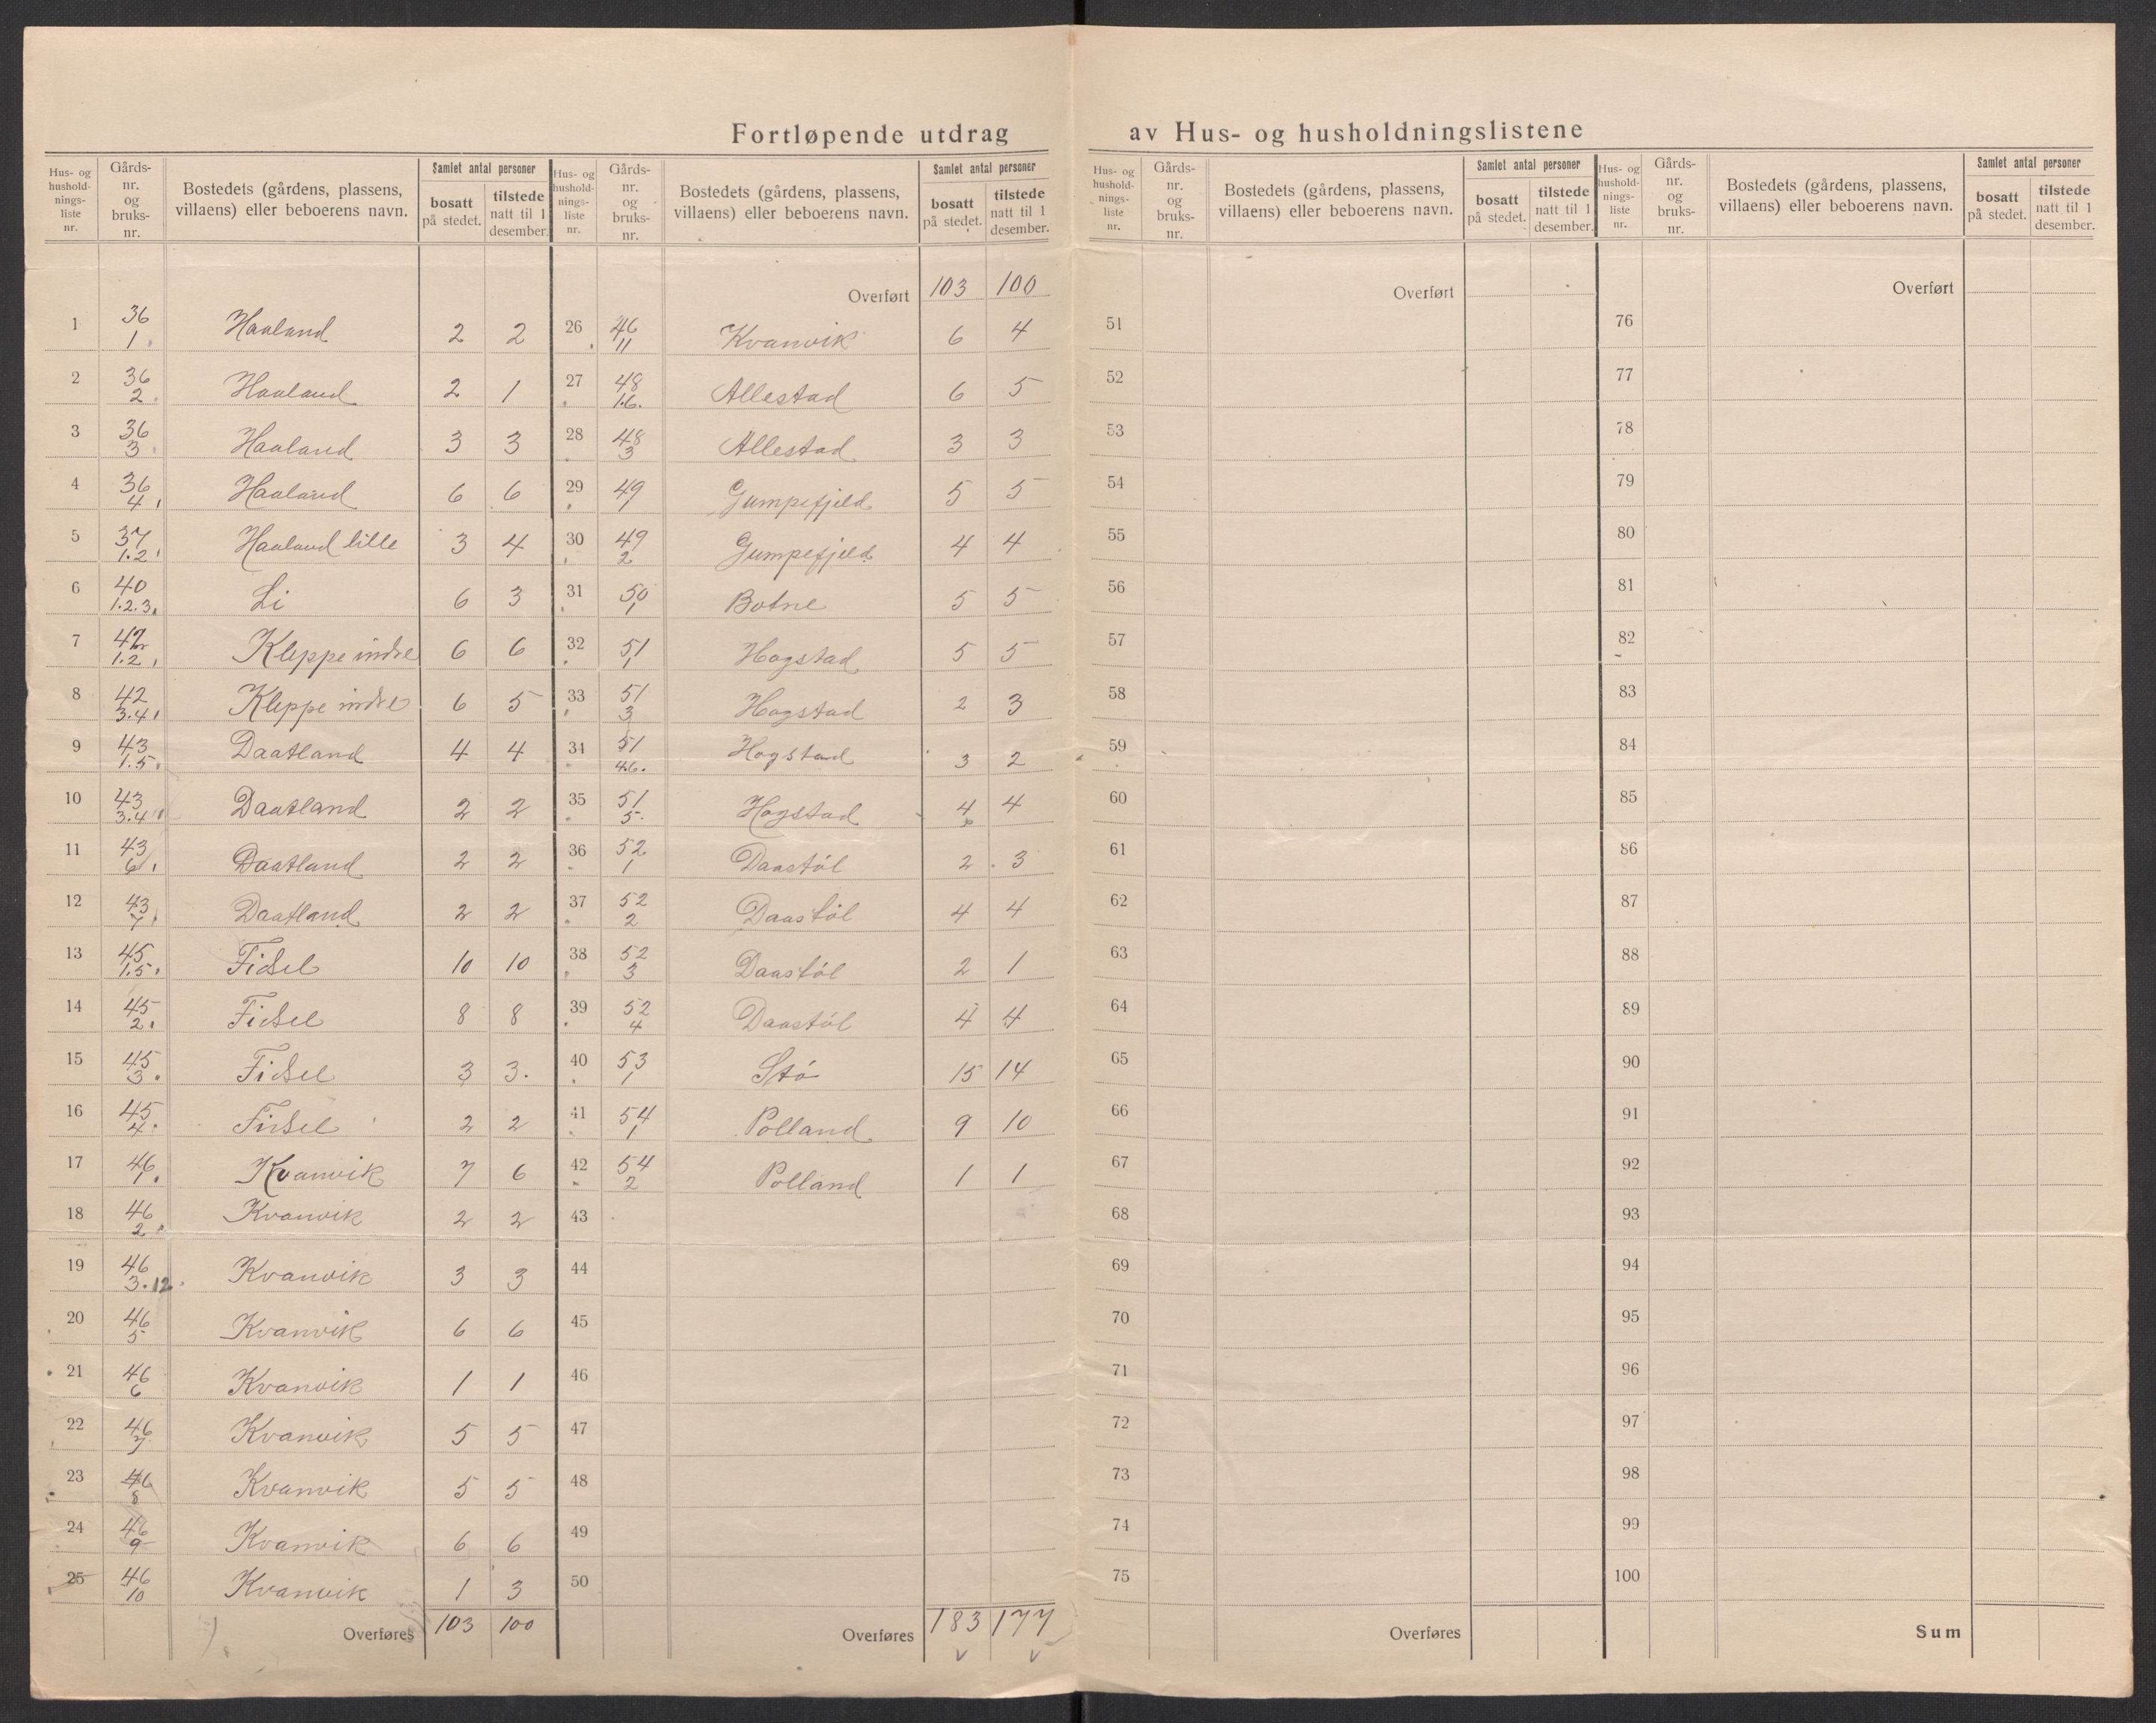 Fortløpende utdrag av Hus- og husholdningslistene
Hus- og husholdnings-liste nr. | Gårds-nr. og bruks-nr. | Bostedets (gårdens, plassens, villaens) eller beboerens navn. | Samlet antal personer | bosatt på stedet. | tilstede natt til 1 desember.
1 | 36 / 1 | Haaland | 2 | 2
2 | 36 / 2 | Haaland | 2 | 1
3 | 36 / 3 | Haaland | 3 | 3
4 | 36 / 4 | Haaland | 6 | 6
5 | 37 / 1.2 | Haaland lille | 3 | 4
6 | 40 / 1.2.3. | Li | 6 | 3
7 | 42 / 1.2 | Kleppe indre | 6 | 6
8 | 42 / 3.4 | Kleppe indre | 6 | 5
9 | 43 / 1.5. | Daatland | 4 | 4
10 | 43 / 3.4 | Daatland | 2 | 2
11 | 43 / 6 | Daatland | 2 | 2
12 | 43 / 7 | Daatland | 2 | 2
13 | 45 / 1.5. | Fidsel | 10 | 10
14 | 45 / 2. | Fidsel | 8 | 8
15 | 45 / 3. | Fidsel | 3 | 3.
16 | 45 / 4. | Fidsel | 2 | 2
17 | 46 / 1. | Kvanvik | 7 | 6
18 | 46 / 2. | Kvanvik | 2 | 2
19 | 46 / 3.12. | Kvanvik | 3 | 3
20 | 46 / 5 | Kvanvik | 6 | 6
21 | 46 / 6 | Kvanvik | 1 | 1
22 | 46 / 7 | Kvanvik | 5 | 5
23 | 46 / 8 | Kvanvik | 5 | 5
24 | 46 / 9 | Kvanvik | 6 | 6
25 | 46 / 10 | Kvanvik | 1 | 3
Overføres | 103 | 100
Hus- og husholdnings-liste nr. | Gårds-nr. og bruks-nr. | Bostedets (gårdens, plassens, villaens) eller beboerens navn. | Samlet antal personer | bosatt på stedet. | tilstede natt til 1 desember.
Overført | 103 | 100
26 | 46 / 11 | Kvanvik | 6 | 4
27 | 48 / 1.6. | Allestad | 6 | 5
28 | 48 / 3 | Allestad | 3 | 3
29 | 49 / 1 | Gumpefjeld | 5 | 5
30 | 49 / 2 | Gumpefjeld | 4 | 4
31 | 50 / 1 | Botne | 5 | 5
32 | 51 / 1 | Hogstad | 5 | 5
33 | 51 / 3 | Hogstad | 2 | 3
34 | 51 / 4.6. | Hogstad | 3 | 2
35 | 51 / 5. | Hogstad | 4 | 4
36 | 52 / 1 | Daastöl | 2 | 3
37 | 52 / 2 | Daastöl | 4 | 4
38 | 52 / 3 | Daastöl | 2 | 1
39 | 52 / 4 | Daastöl | 4 | 4
40 | 53 / 1 | Stö | 15 | 14
41 | 54 / 1 | Polland | 9 | 10
42 | 54 / 2 | Polland | 1 | 1
43
44
45
46
47
48
49
50
Overføres | 183 | 177
Hus- og husholdnings-liste nr. | Gårds-nr. og bruks-nr. | Bostedets (gårdens, plassens, villaens) eller beboerens navn. | Samlet antal personer | bosatt på stedet. | tilstede natt til 1 desember.
Overført
51
52
53
54
55
56
57
58
59
60
61
62
63
64
65
66
67
68
69
70
71
72
73
74
75
Overføres
Hus- og husholdnings-liste nr. | Gårds-nr. og bruks-nr. | Bostedets (gårdens, plassens, villaens) eller beboerens navn. | Samlet antal personer | bosatt på stedet. | tilstede natt til 1 desember.
Overført
76
77
78
79
80
81
82
83
84
85
86
87
88
89
90
91
92
93
94
95
96
97
98
99
100
Sum